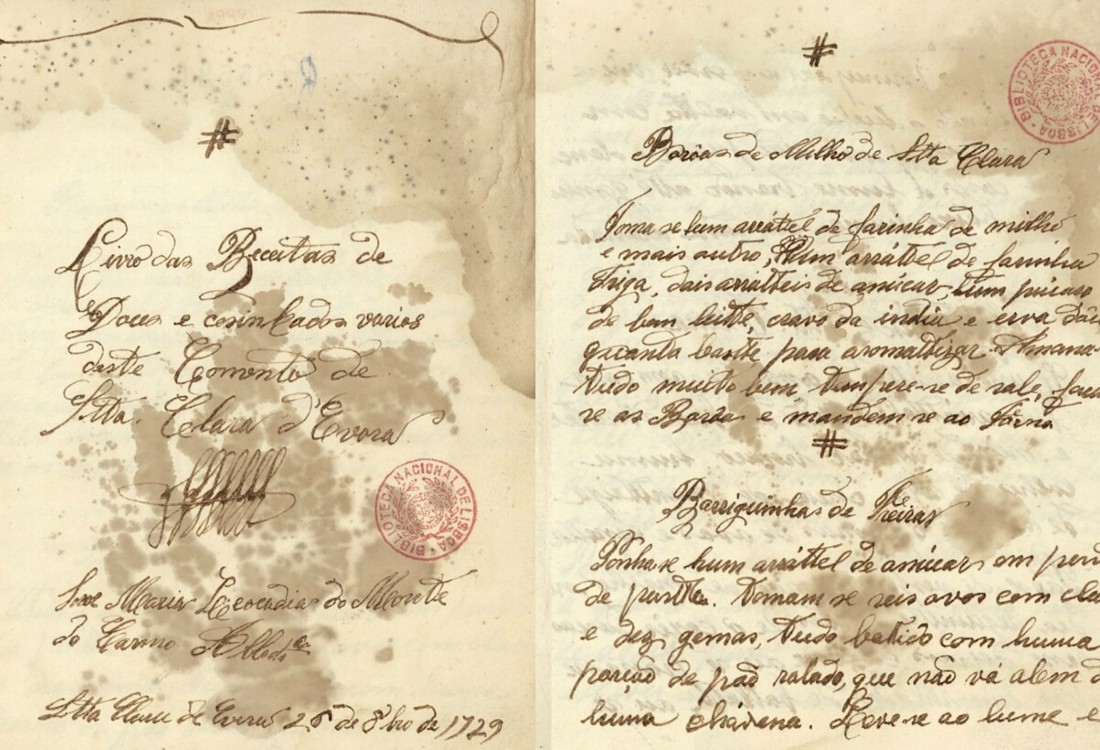 #
Livro das Receitas de
Doces e cosinhados varios
deste Convento de
Stta. Clara d'Evora
BIBLIOTECA NACIONAL DE LISBOA
Soror Maria Leocadia do Monte
do Carmo Abbadeça
Stta Clara de Evora 26 de 8bro de 1729
#
BIBLIOTECA NACIONAL DE LISBOA
Borôas de Milho de Stta Clara
Toma se hum arráttel de farinha de milho
e mais outro, hum arráttel de farinha
triga, dois arratteis de assucar, hum pucaro
de bom leitte, cravo da india e erva
quanto baste para aromattizar. Amaça-
tudo muito bem, tempere-se de sal, faça
se as Borôas e mandem-se ao forno
#
Barriguinhas de Freiras
Ponha se hum arráttel de assucar em
de pastta. Tomam se seis ovos com
e dez gemas, tudo batido com huma
porção de pão ralado, que não vá alem
huma chávena. Leve-se ao lume e